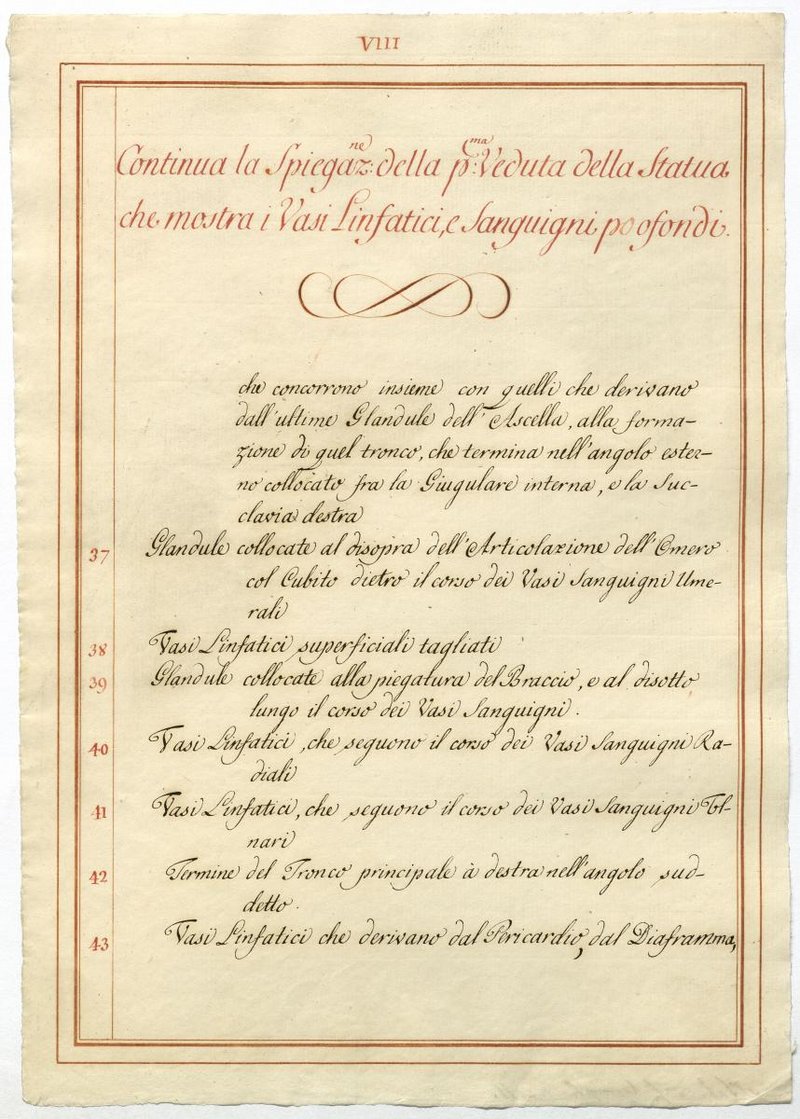 VIII
Continua la Spiegaz:ne della p:ma Veduta della Statua
che mostra i Vasi Linfatici, e Sanguigni poofondi.
che concorrono insieme con quelli che derivano
dall'ultime Glandule dell'Ascella, alla forma-
zione di quel tronco, che termina nell'angolo ester-
no collocato fra la Giugulare interna, e la Suc-
clavia destra
37 Glandule collocate al disopra dell'Articolazione dell'Omero
col Cubito dietro il corso dei Vasi Sanguigni Ume-
rali
38 Vasi Linfatici superficiali tagliati
39 Glandule collocate alla piegatura del Braccio, e al disotto
lungo il corso dei Vasi Sanguigni.
40 Vasi Linfatici, che seguono il corso dei Vasi Sanguigni Ra-
diali
41 Vasi Linfatici, che seguono il corso dei Vasi Sanguigni Ul-
nari
42 Termine del Tronco principale à destra nell'angolo sud-
detto.
43 Vasi Linfatici che derivano dal Pericardio, dal Diaframma,